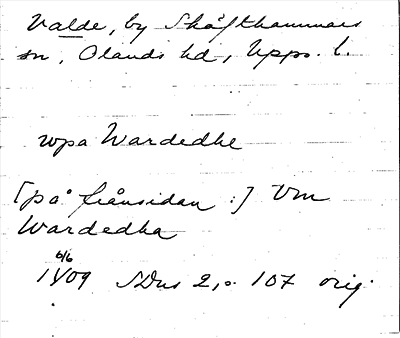 Valde, by Skäfthammars
sn, Olands hd, Upps. l.
wpa Wardedhe
[på frånsidan:] Vm
Wardedha
6/6
1409 SDns 2, s. 107 orig.